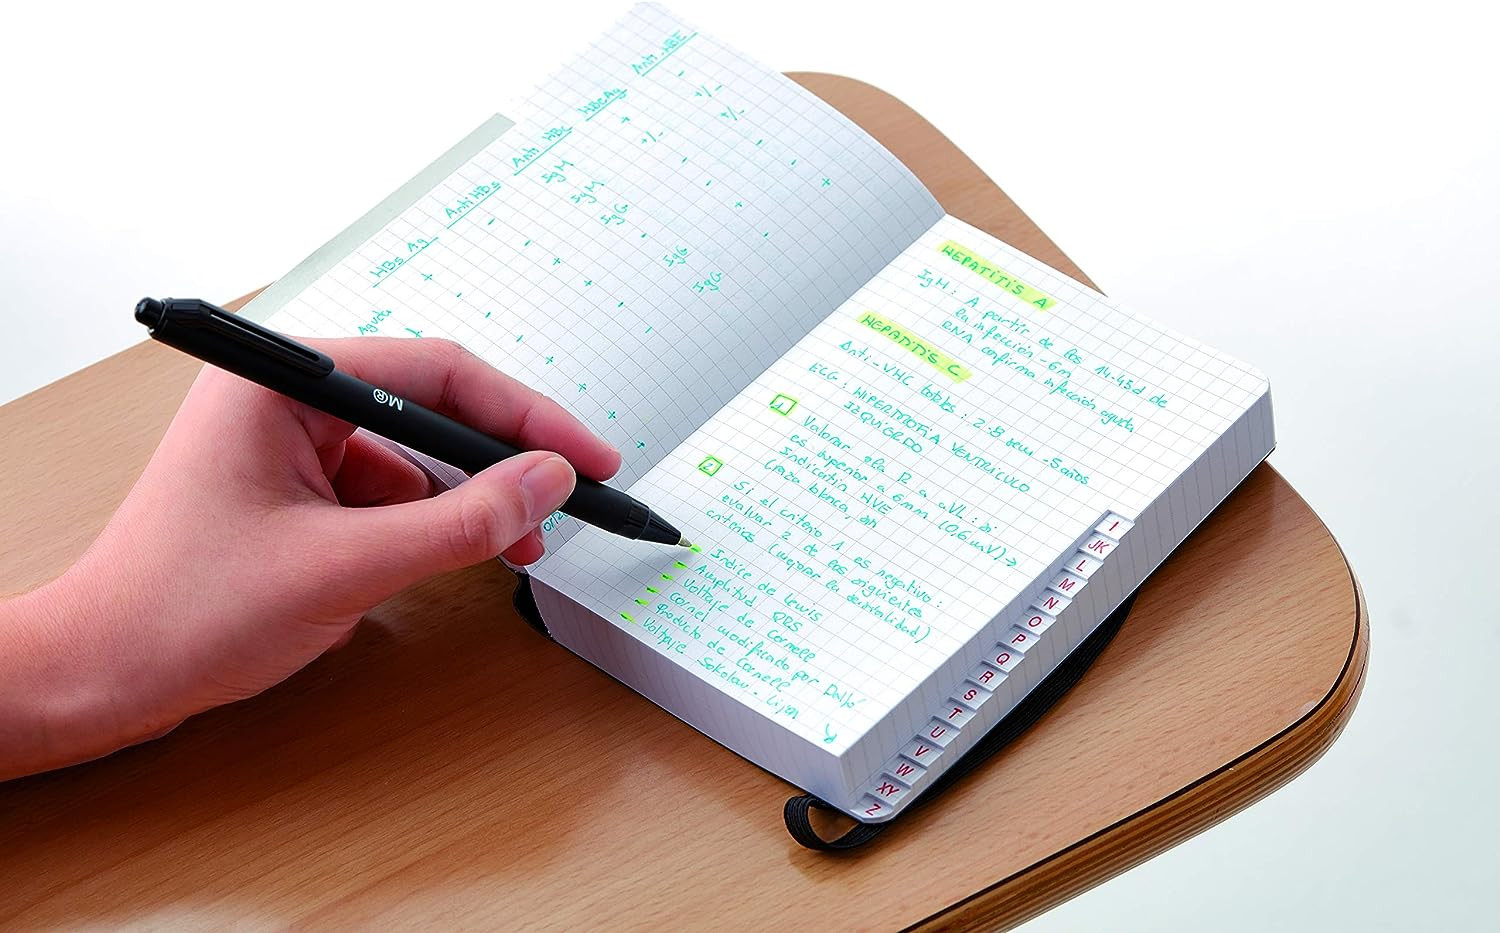 HBs Ag Anti HBs Anti HBc HBeAg Anti-HBE
Aguda + - IgM + -
+ - IgM +/- +/-
- - IgG - +/-
- + IgG - -
- + IgG - +
HEPATITIS A
IgM: A partir de los 14-45d de
la infección - 6m
RNA confirma infección aguda
HEPATITIS C
Anti-VHC totales: 2-8 sem - 5 años
ECG: HIPERTROFIA VENTRICULO
IZQUIERDO
1 Valorar la R a aVL: si
es superior a 6mm (0,6mV) →
Indicativo HVE
2 Si el criterio 1 es negativo:
evaluar 2 de los siguientes
criterios (mejorar la
- Indice de Lewis
- Amplitud QRS
- Voltaje de Cornell
- Cornel modificado por Dalfó
- Producto de Cornell
- Voltaje Sokolow - Lyon
M®
I
JK
L
M
N
O
P
Q
R
S
T
U
V
W
XY
Z